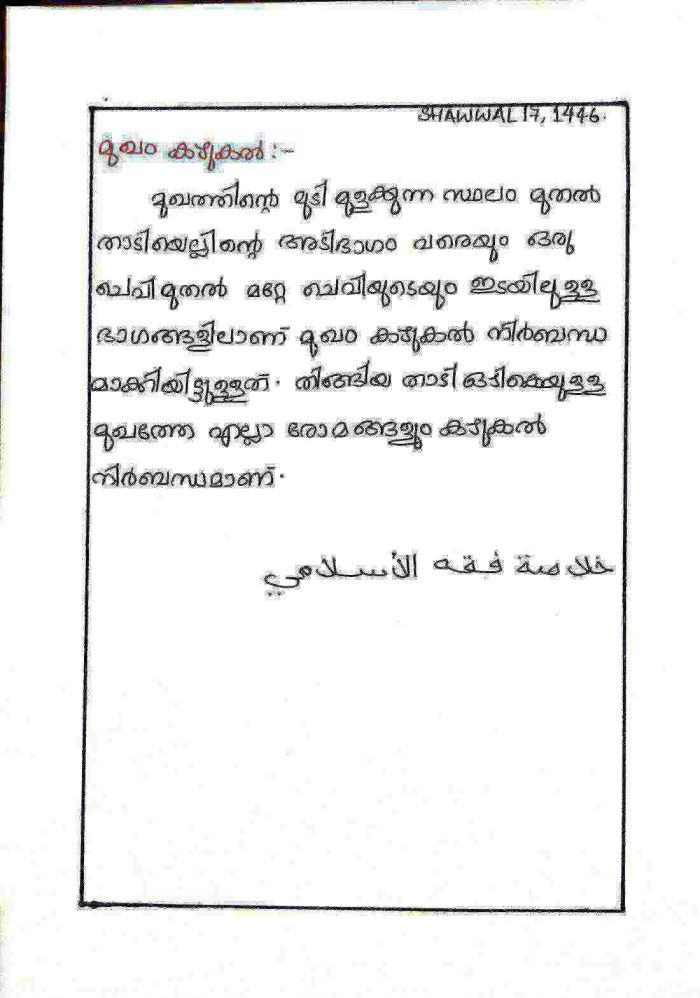 SHAWWAL 17, 1446.
മുഖം കഴുകൽ :-
മുഖത്തിന്റെ മുടി മുളക്കുന്ന സ്ഥലം മുതൽ
താടിയെല്ലിന്റെ അടിഭാഗം വരെയും ഒരു
ചെവി മുതൽ മറ്റേ ചെവിയുടെയും ഇടയിലുള്ള
ഭാഗങ്ങളിലാണ് മുഖം കഴുകൽ നിർബന്ധ
മാക്കിയിട്ടുള്ളത്. തിങ്ങിയ താടി ഒഴികെയുള്ള
മുഖത്തേ എല്ലാ രോമങ്ങളും കഴുകൽ
നിർബന്ധമാണ്.
خلاصة فقه الأسلامي